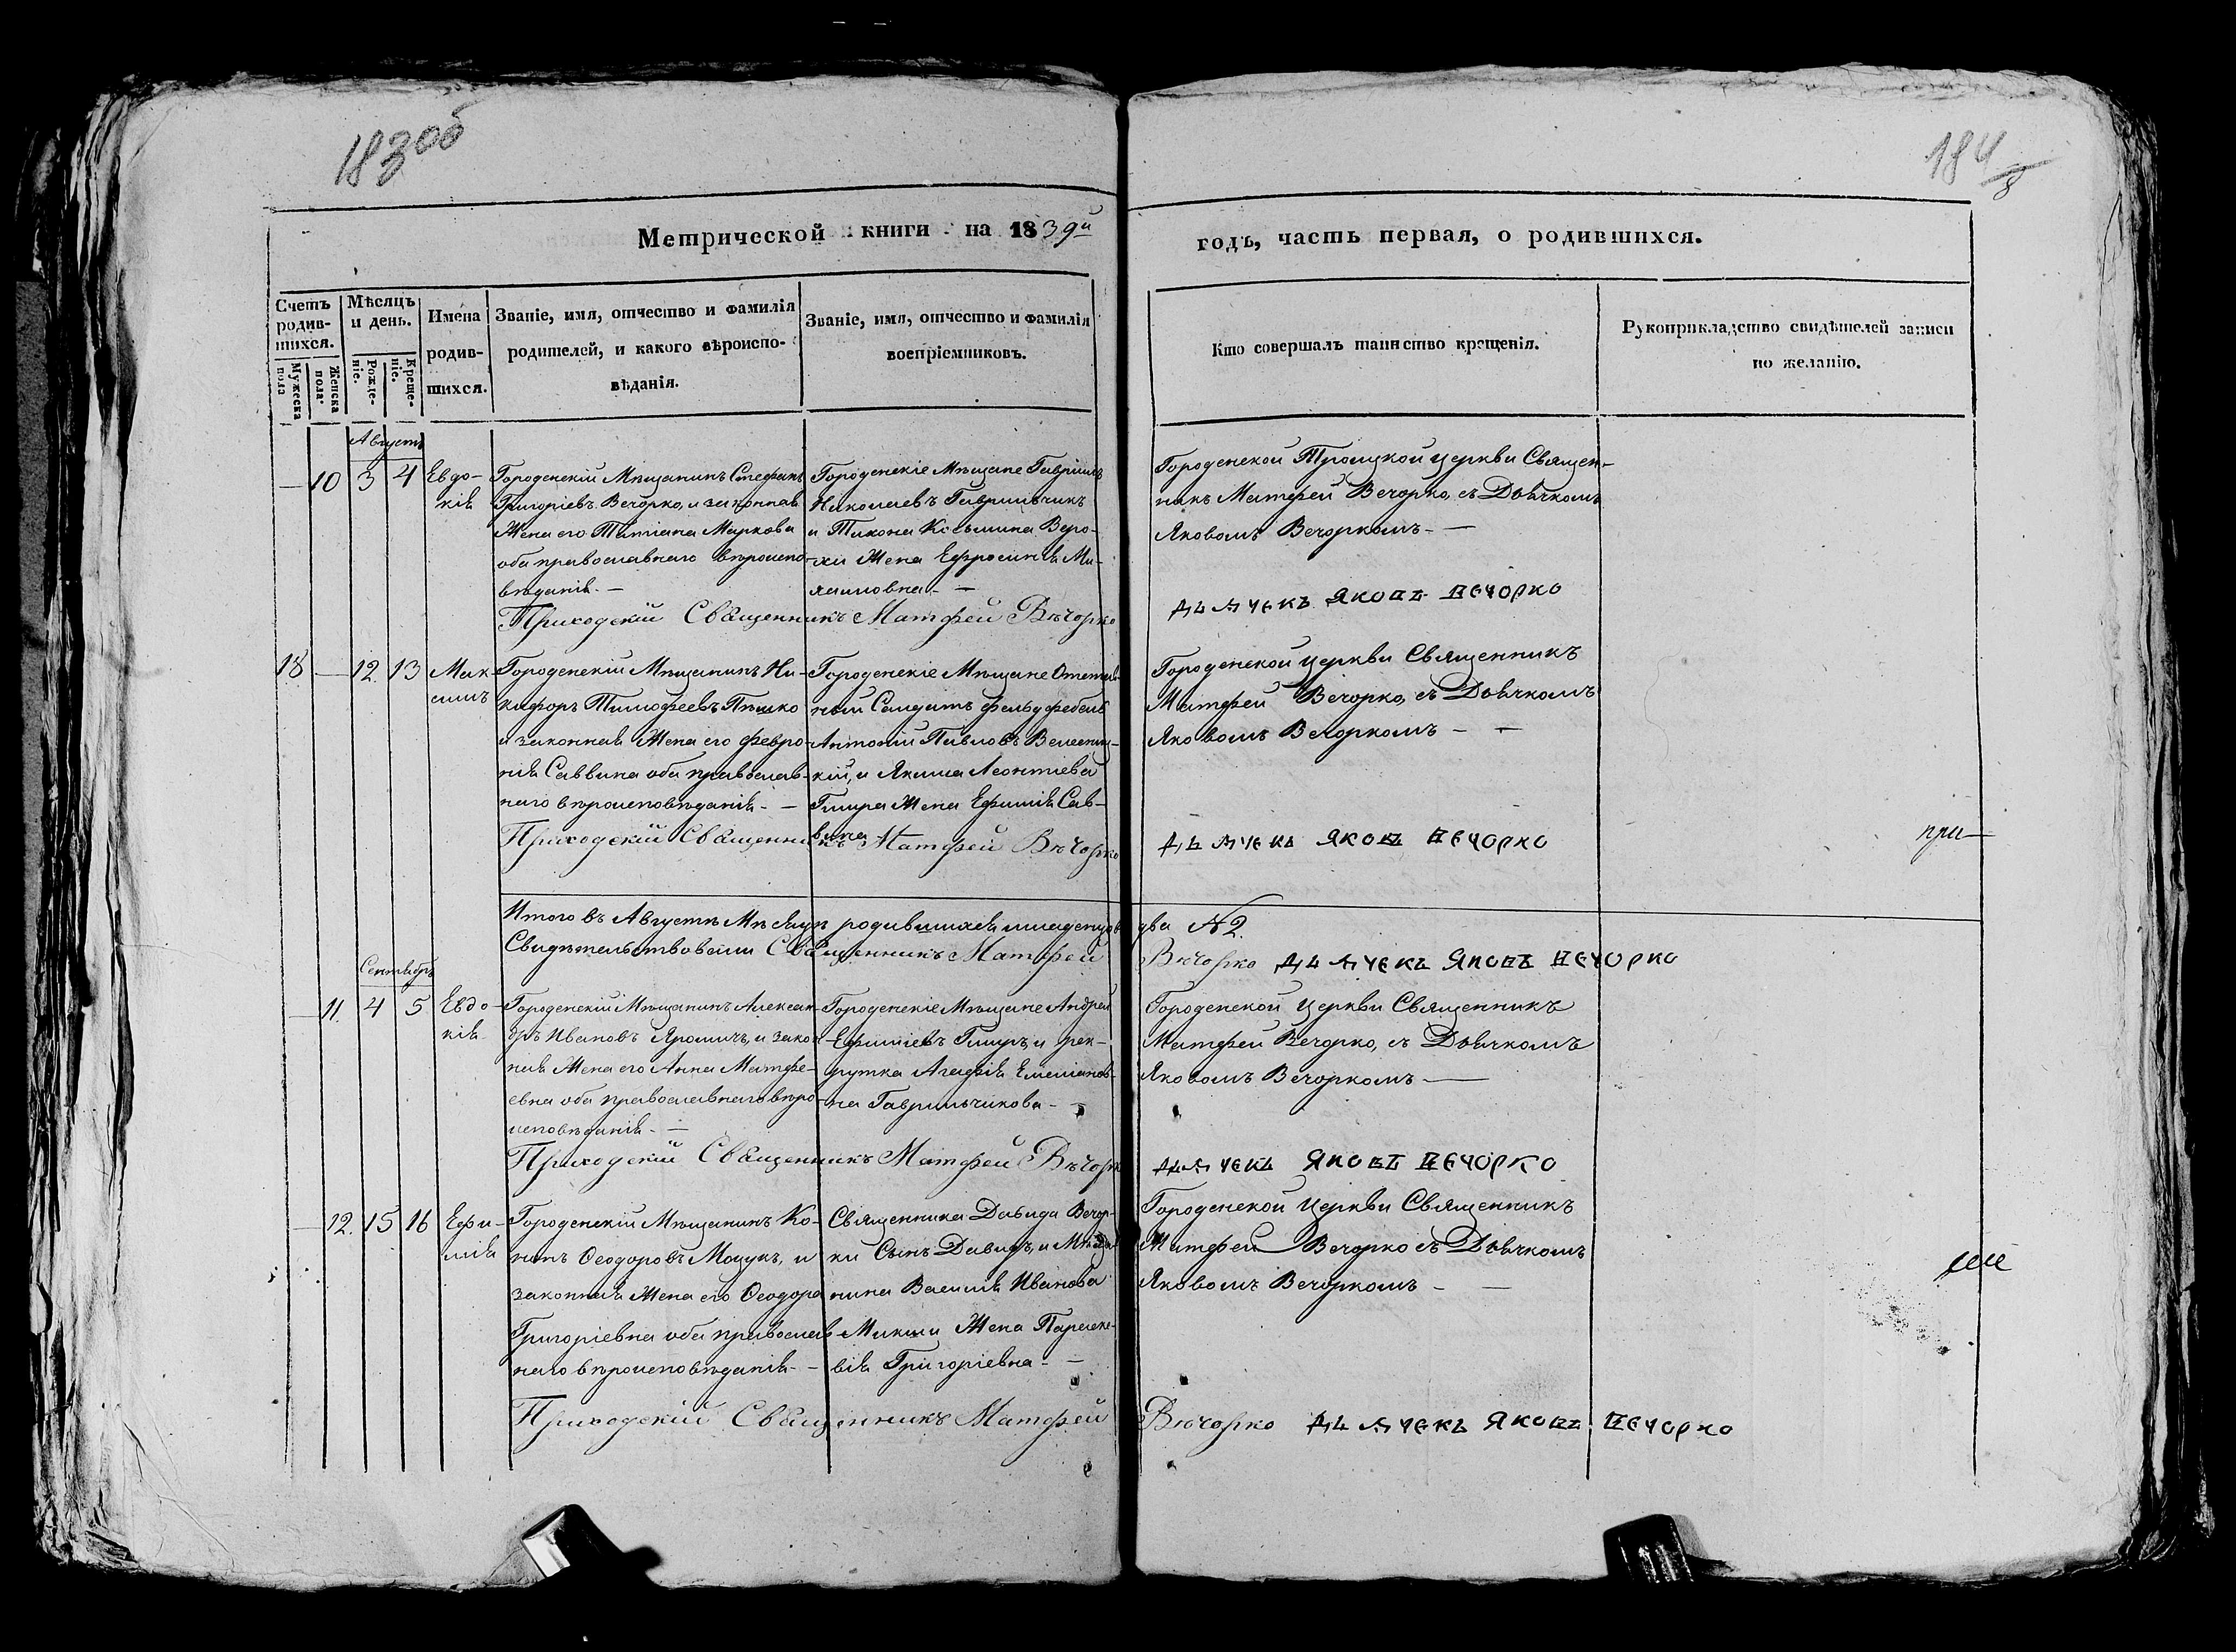 183об
184
8
Метрической книги на 1839й
годъ, часть первая, о родившихся.
Счетъ родив-шихся.
Мужеска пола
Женска пола.
Мѣсяцъ и день.
Рожде-ніе.
Креще-ніе.
Имена
родив-
шихся.
Званіе, имя, отчество и фамилія
родителей, и какого вѣроиспо-
вѣданія.
Званіе, имя, отчество и фамилія
воспріемниковъ.
Кто совершалъ таинство крещенія.
Рукоприкладство свидѣтелей записи
по желанію.
Августъ
— 10 3 4
Евдо-
кія
Городенскій Мѣщанинъ Стефанъ
Григоріевъ Вечорко, и законная
Жена его Татіана Маркова
оба православнаго вѣроиспо-
вѣданія. —
Городенскіе Мѣщане Гавріилъ
Николаевъ Гаврильчикъ
и Тихона Козьмина Веро-
хи Жена Ефросинія Ма-
ксимовна. —
Городенской Троицкой церкви Священ-
никъ Матфей Вечорко, съ Дьячкомъ
Яковомъ Вечоркомъ. —
Приходскій Священникъ Матфей Вѣчорко
Дьячекъ Яковъ Вечорко
18 — 12. 13
Мак-
симъ
Городенскій Мѣщанинъ Ни-
кифоръ Тимофеевъ Пѣшко
и законная Жена его Февро-
нія Саввина оба православ-
наго вѣроисповѣданія. —
Городенскіе Мѣщане Отстав-
ный Салдатъ фельдфебель
Антоній Павловъ
кій, и Якима Леонтіева
Гмира Жена Ефимія Сав-
вина
Городенской церкви Священникъ
Матфей Вечорко, съ Дьячкомъ
Яковомъ Вечоркомъ — —
Приходскій Священникъ Матфей Вѣчорко
Дьячекъ Яковъ Вечорко
при—
Итого въ Августѣ Мѣсяцѣ родившихся младенцовъ два № 2.
Свидѣтельствовали Священникъ Матфей Вѣчорко Дьячекъ Яковъ Вечорко
Сентябрь
— 11. 4 5
Евдо-
кія
Городенскій Мѣщанинъ Алексан-
дръ Ивановъ Яромичъ, и закон-
ная Жена его Анна Матфе-
евна оба православнаго вѣро-
исповѣданія. —
Городенскіе Мѣщане Андрей
Ефиміевъ Гмиръ, и рек-
рутка Агафія Емеліанов-
на Гаврильчикова. —
Городенской Церкви Священникъ
Матфей Вечорко, съ Дьячкомъ
Яковомъ Вечоркомъ —
Приходскій Священникъ Матфей Вѣчорко
Дьячекъ Яковъ Вечорко
— 12. 15 16
Ефи-
мія
Городенскій Мѣщанинъ Ко-
нонъ Ѳеодоровъ Мацукъ, и
законная Жена его Ѳеодора
Григоріевна оба православ-
наго вѣроисповѣданія. —
Священника Давида Вечор-
ки Сынъ Давидъ, и Мѣща-
нина Василія Иванова
Жена Параске-
вія Григоріевна. —
Городенской Церкви Священникъ
Матфей Вечорко съ Дьячкомъ
Яковомъ Вечоркомъ — —
Приходскій Священникъ Матфей Вѣчорко Дьячекъ Яковъ Вечорко